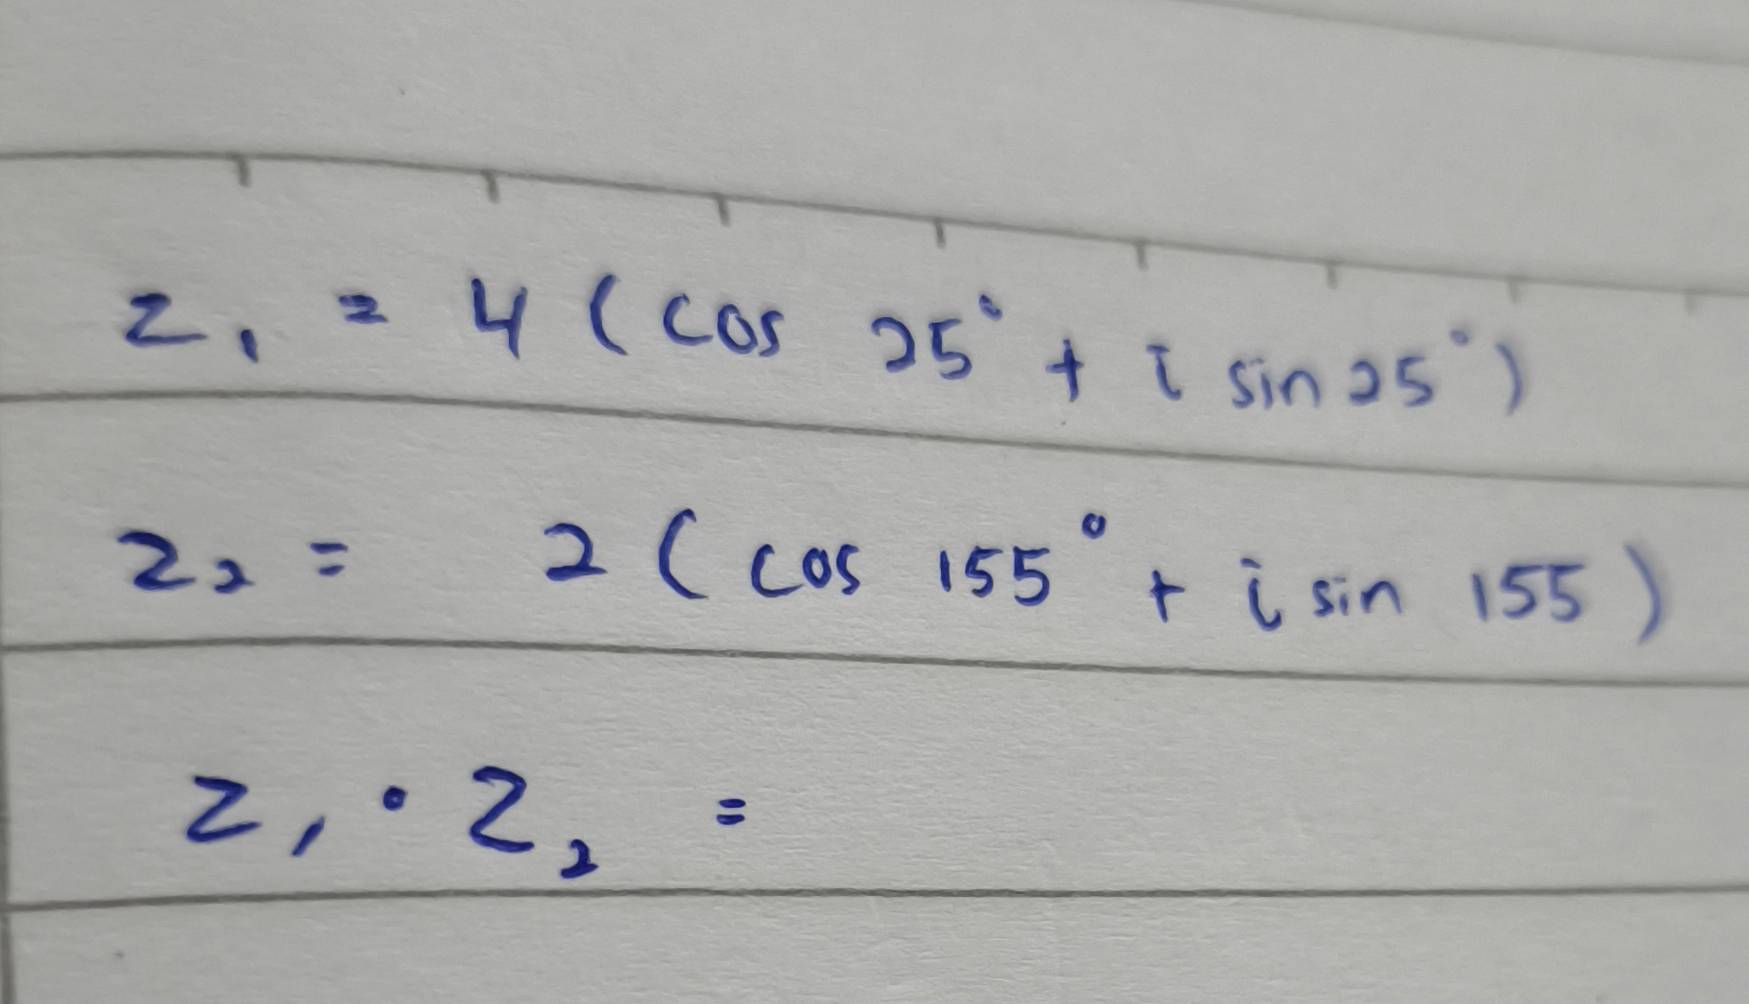 z₁ = 4 (cos 25° + i sin 25°)
z₂ = 2 (cos 155° + i sin 155)
z₁ · z₂ =